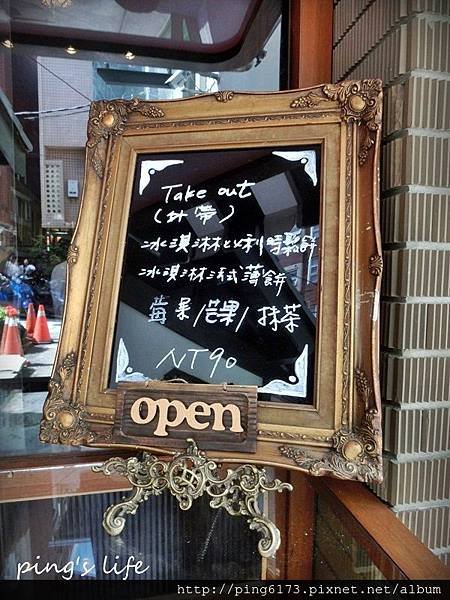 Take out
(外帶)
冰淇淋比利時鬆餅
冰淇淋法式薄餅。
莓果/芒果/抹茶
NT90
open
ping's life
http://ping6173.pixnet.net/album